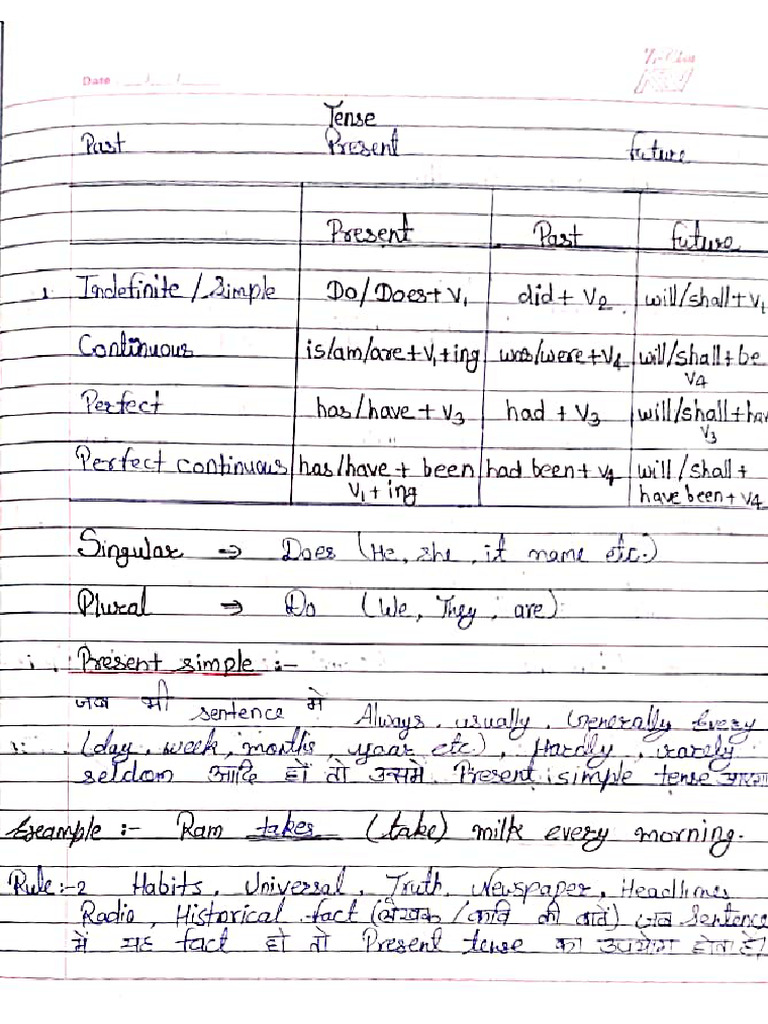 Date
Tense
Past Present future
Present Past future
Indefinite / Simple Do/Does + V₁ did + V₂ will/shall + V₁
Continuous is/am/are + V₁ + ing was/were + V₄ will/shall + be
V₄
Perfect has/have + V₃ had + V₃ will/shall + hav
V₃
Perfect continuous has/have + been had been + V₄ will/shall +
V₁ + ing have been + V₄
Singular ⇒ Does (He, she, it name etc.)
Plural → Do (We, They, are)
i. Present simple :-
जब भी sentence मे Always, usually, Generally Every
(day, week, months, year etc.), Hardly, rarely
seldom आदि हों तो उसमे Present simple tense
Example :- Ram takes (take) milk every morning.
Rule:-2 Habits, Universal, Truth, Newspaper, Headlines
Radio, Historical fact (लेखक / कवि की बातें) जब Sentence
में यह fact हो तो Present tense का उपयोग होता है।